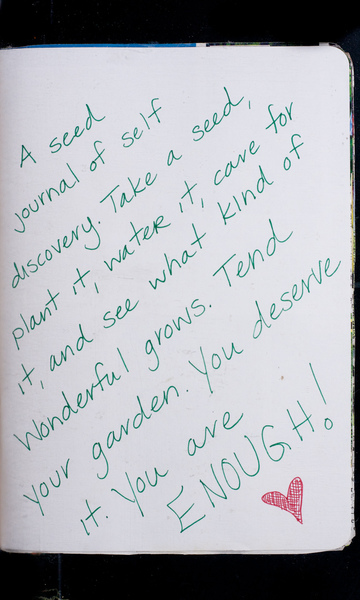 A seed
journal of self
discovery. Take a seed,
plant it, water it, care for
it, and see what kind of
Wonderful grows. Tend
your garden. You deserve
it. You are
ENOUGH!